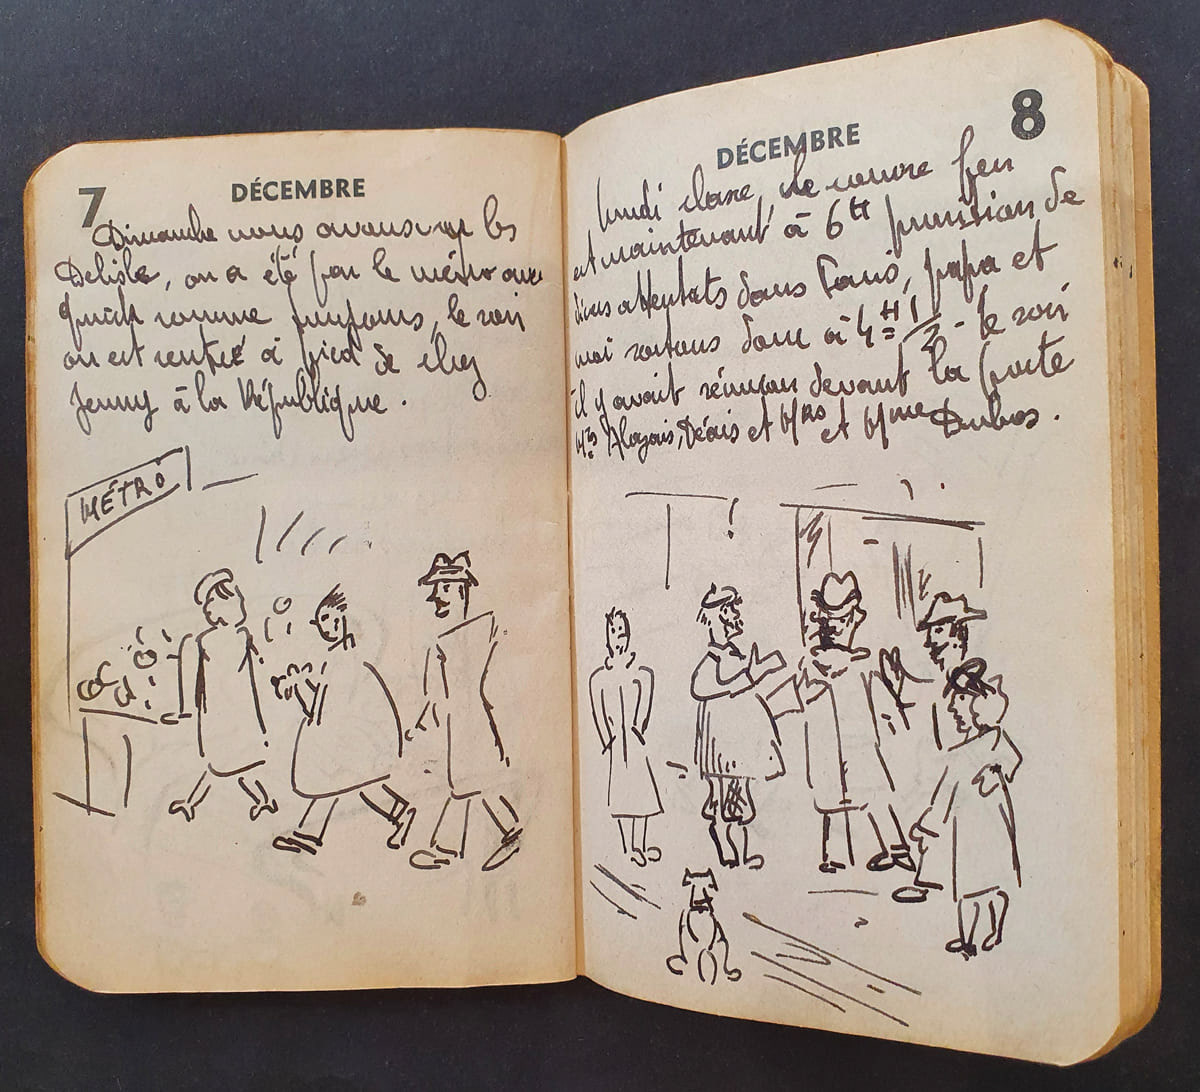 7
DÉCEMBRE
Dimanche nous avons vu les
Delisle, on a été par le métro avec
comme, le soir
on est rentré à pied de chez
Jenny à la République.
MÉTRO
8
DÉCEMBRE
lundi classe, le couvre feu
est maintenant à 6H punition de
attentats dans Paris, papa et
moi sortons donc à 4H 1/2 - le soir
il y avait réunion devant la porte
Mrs et Mme Dubos.